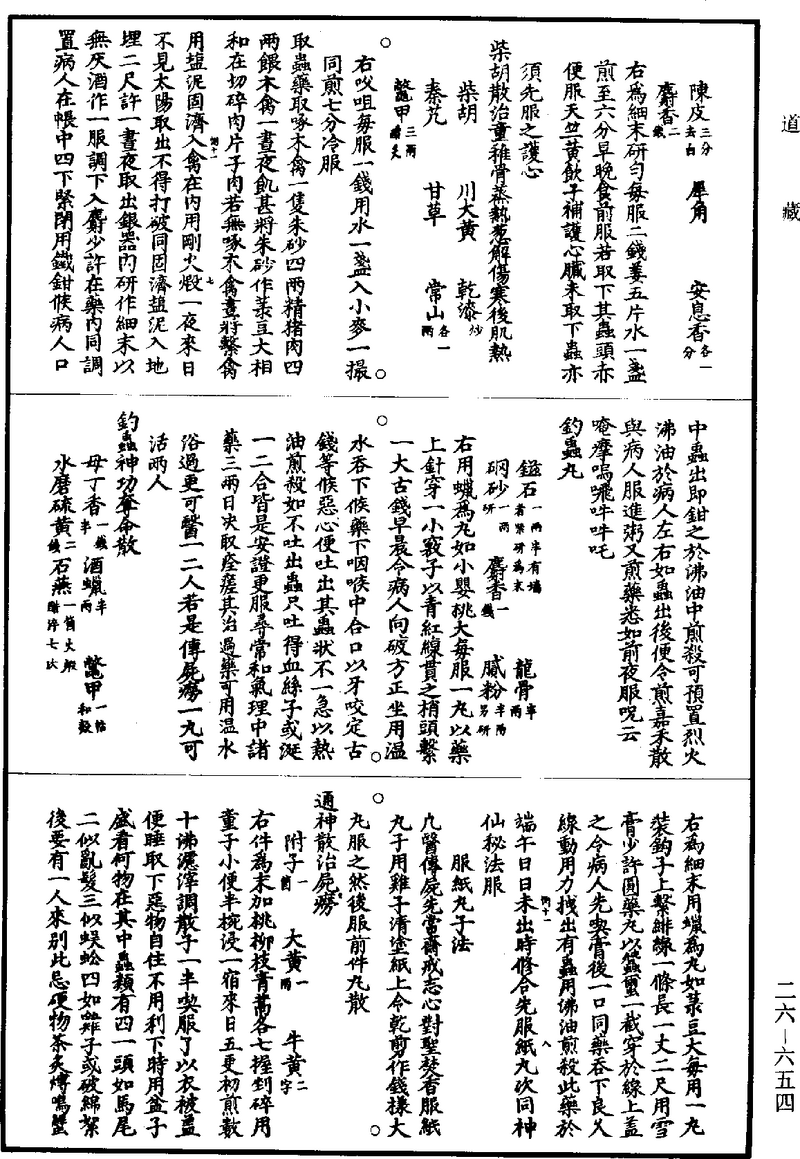 道藏
陳皮三分去白 犀角 安息香各一分
麝香二錢
右為細末研勻每服二錢姜五片水一盞
煎至六分早晚食前服若取下其蟲頭赤
便服天竺黃飲子補護心臟未取下蟲亦
須先服之護心
柴胡散治童稚骨蒸熱葱解傷寒後肌熱
柴胡 川大黃 乾漆炒
秦艽 甘草 常山各一兩
鱉甲三兩醋炙
右㕮咀每服一錢用水一盞入小麥一撮
同煎七分冷服
取蟲藥取啄木禽一隻朱砂四兩精猪肉四
兩餵木禽一晝夜飢甚將朱砂作菉豆大相
和在切碎肉片子肉若無啄木禽晝將繫禽
用塩泥固濟入禽在內用剛火煅一夜來日
不見太陽取出不得打破同固濟塩泥入地
埋二尺許一晝夜取出銀器內研作細末以
無灰酒作一服調下入麝少許在藥內同調
置病人在帳中四下緊閉用鐵鉗候病人口
中蟲出即鉗之於沸油中煎殺可預置烈火
沸油於病人左右如蟲出後便令煎嘉禾散
與病人服進粥又煎藥悉如前夜服呪云
唵摩嗚囕吽吽吒
釣蟲丸
鎡石一兩半有墻者紫研為末 龍骨半兩
硇砂一兩研 麝香一錢 膩粉半兩另研
右用蠟為丸如小嬰桃大每服一丸以藥
上針穿一小竅子以青紅線貫之梢頭繫
一大古錢早晨令病人向破方正坐用溫
水吞下候藥下咽喉中合口以牙咬定古
錢等候惡心便吐出其蟲狀不一急以熱
油煎殺如不吐出蟲只吐得血絲子或涎
一二合皆是安證更服尋常和氣理中諸
藥三兩日決取痊瘥其治過藥可用溫水
浴過更可醫一二人若是傳屍癆一丸可
活兩人
釣蟲神功奪命散
母丁香一錢半 酒蠟半兩 鱉甲一枯和殼
水磨硫黃二錢 石燕一箇火煅醋淬七次
右為細末用蠟為丸如菉豆大每用一丸
裝鈎子上繫緋線一條長一丈二尺用雪
膏少許圓藥丸以蠶璽一截穿於線上蓋
之令病人先喫膏後一口同藥吞下良久
線動用力拽出有蟲用沸油煎殺此藥於
端午日日未出時修合先服紙丸次同神
仙秘法服
服紙丸子法
凡醫傳屍先當齋戒志心對聖焚香服紙
丸子用雞子清塗紙上令乾剪作錢樣大
丸服之然後服前件丸散
通神散治屍癆
附子一箇 大黃一兩 牛黃二字
右件為末加桃柳枝青蒿各七握剉碎用
童子小便半椀浸一宿來日五更初煎數
十沸濾滓調散子一半喫服了以衣被蓋
便睡取下惡物自住不用利下時用盆子
盛看何物在其中蟲類有四一頭如馬尾
二似亂髮三似蜈蚣四如雞子或破綿絮
後要有一人來别此忌硬物茶炙煿鳴蟹
二六—六五四